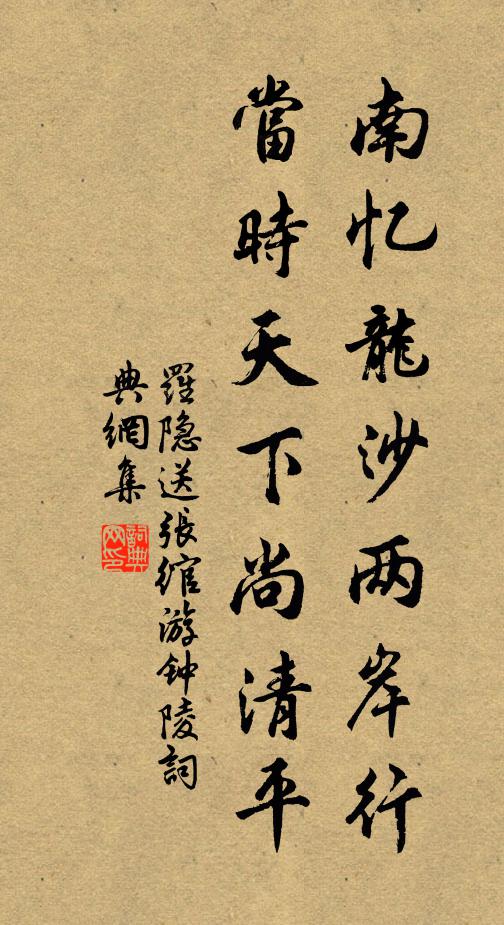 南忆龍沙两岸行
當時天下尚清平
羅隐送張綰游钟陵詞
典網集
詞典網印